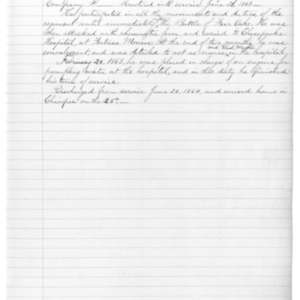 Company H. Mustered into service June 20, 1861.
Had participated in all the movements and duties of the
regiment until immediately the Battle of Fair Oaks. He was
then attacked with chronic and carried to Chesapeake
Hospital, at Fortress Monroe. At the end of two months he was
convalescent and was detailed to act as in the hospital.
February 20, 1863, he was placed in charge of an engine for
pumping water at the hospital, and in this duty he finished
his term of service.
Discharged from service June 20, 1864, and arrived home in
Chicopee on the 25th.